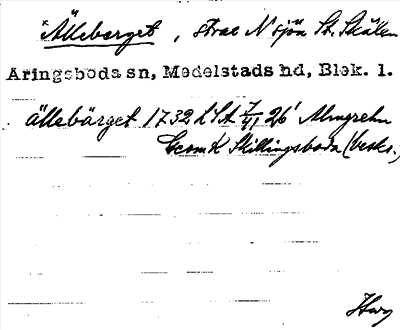 *Älleberget, strax N sjön St. Skälen
Aringsboda sn, Medelstads hd, Blek. l.
ällebärget 1732 LSA 7/VI 26' Almgrehn
Geom K Skillingsboda (beskr.)